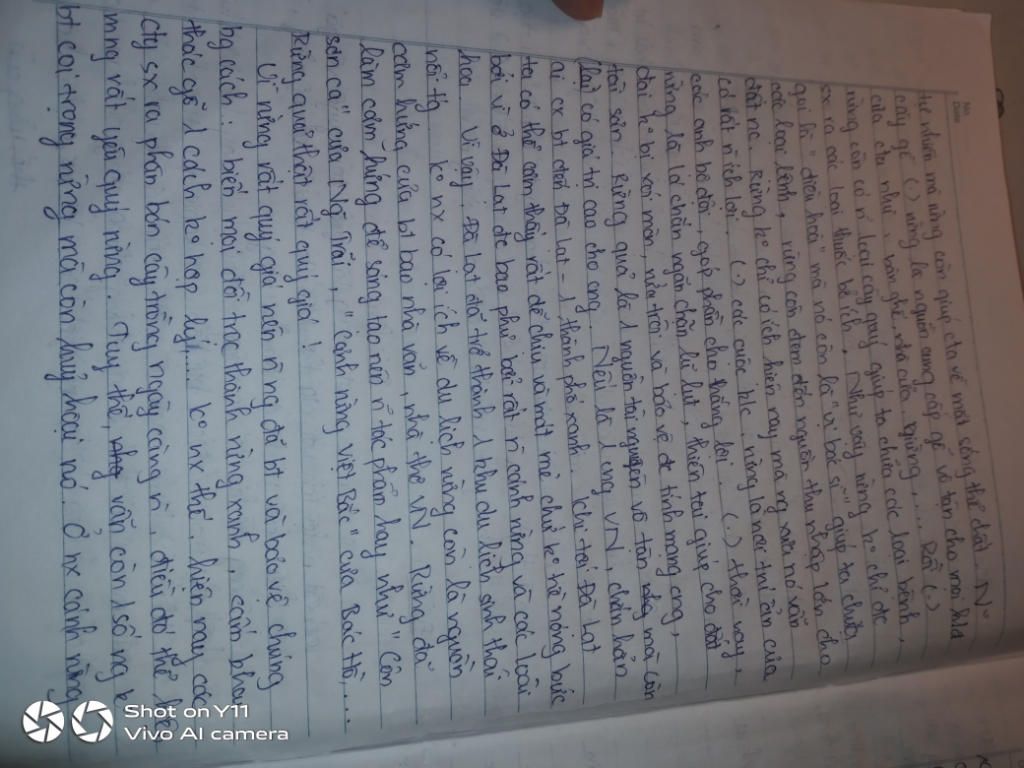 tự nhiên mà rừng còn giúp cta về mặt sống thế đất. N~
cây gỗ (.) rừng là nguồn cung cấp gỗ vô tận cho mọi
của cta như: bàn ghế, tủ cửa, giường, ... Rồi (.)
rừng còn có n~ loại cây quý giúp ta chữa các loại bệnh,
sx ra các loại thuốc bổ ích. Như vậy rừng ko chỉ đc
gọi là "điều hoà" mà nó còn là "vị bác sĩ" giúp ta chữa
các loại bệnh, rừng còn đem đến nguồn thu nhập lớn cho
đất nc. Rừng ko chỉ có ích hiện nay mà ng xưa nó vẫn
có rất n` ích lợi. (.) các cuộc k/c, rừng là nơi trú ẩn của
các anh bộ đội, góp phần cho thắng lợi. (.) thời nay,
rừng là lá chắn ngăn chặn lũ lụt, thiên tai giúp cho đất
đai ko bị xói mòn, rửa trôi và bảo vệ đc tính mạng con ng.
Rừng quả là 1 nguồn tài nguyên vô tận mà còn
tài sản có giá trị cao cho cng. Nếu là 1 cng VN, chắc hẳn
ai cx bt đến Đà Lạt - 1 thành phố xanh. Khi tới Đà Lạt
ta có thể cảm thấy rất dễ chịu và mát mẻ chứ ko hề nóng bức
bởi vì ở Đà Lạt đc bao phủ bởi rất n` cánh rừng và các loài
hoa. Vì vậy, Đà Lạt đã trở thành 1 khu du lịch sinh thái
nổi tg. Ko nx có lợi ích về du lịch rừng còn là nguồn
cảm hứng của bt bao nhà văn, nhà thơ VN. Rừng đã
làm cảm hứng để sáng tạo nên n~ tác phẩm hay như "Côn
sơn ca" của Ng Trãi, "Cảnh rừng Việt Bắc" của Bác Hồ,...
Rừng quả thật rất quý giá!
Vì rừng rất quý giá nên n` ng đã bt và bảo vệ chúng
bg cách: biến mọi đồi trọc thành rừng xanh, cấm khai
thác gỗ 1 cách ko hợp lý,... Ko nx thế. hiện nay các
cty sx ra phân bón cây trồng ngày càng n`. điều đó thể
mng rất yêu quý rừng. Tuy thế, vẫn còn 1 số ng k
bt coi trọng rừng mà còn huỷ hoại nó. Ở nx cánh rừng
Shot on Y11
Vivo AI camera